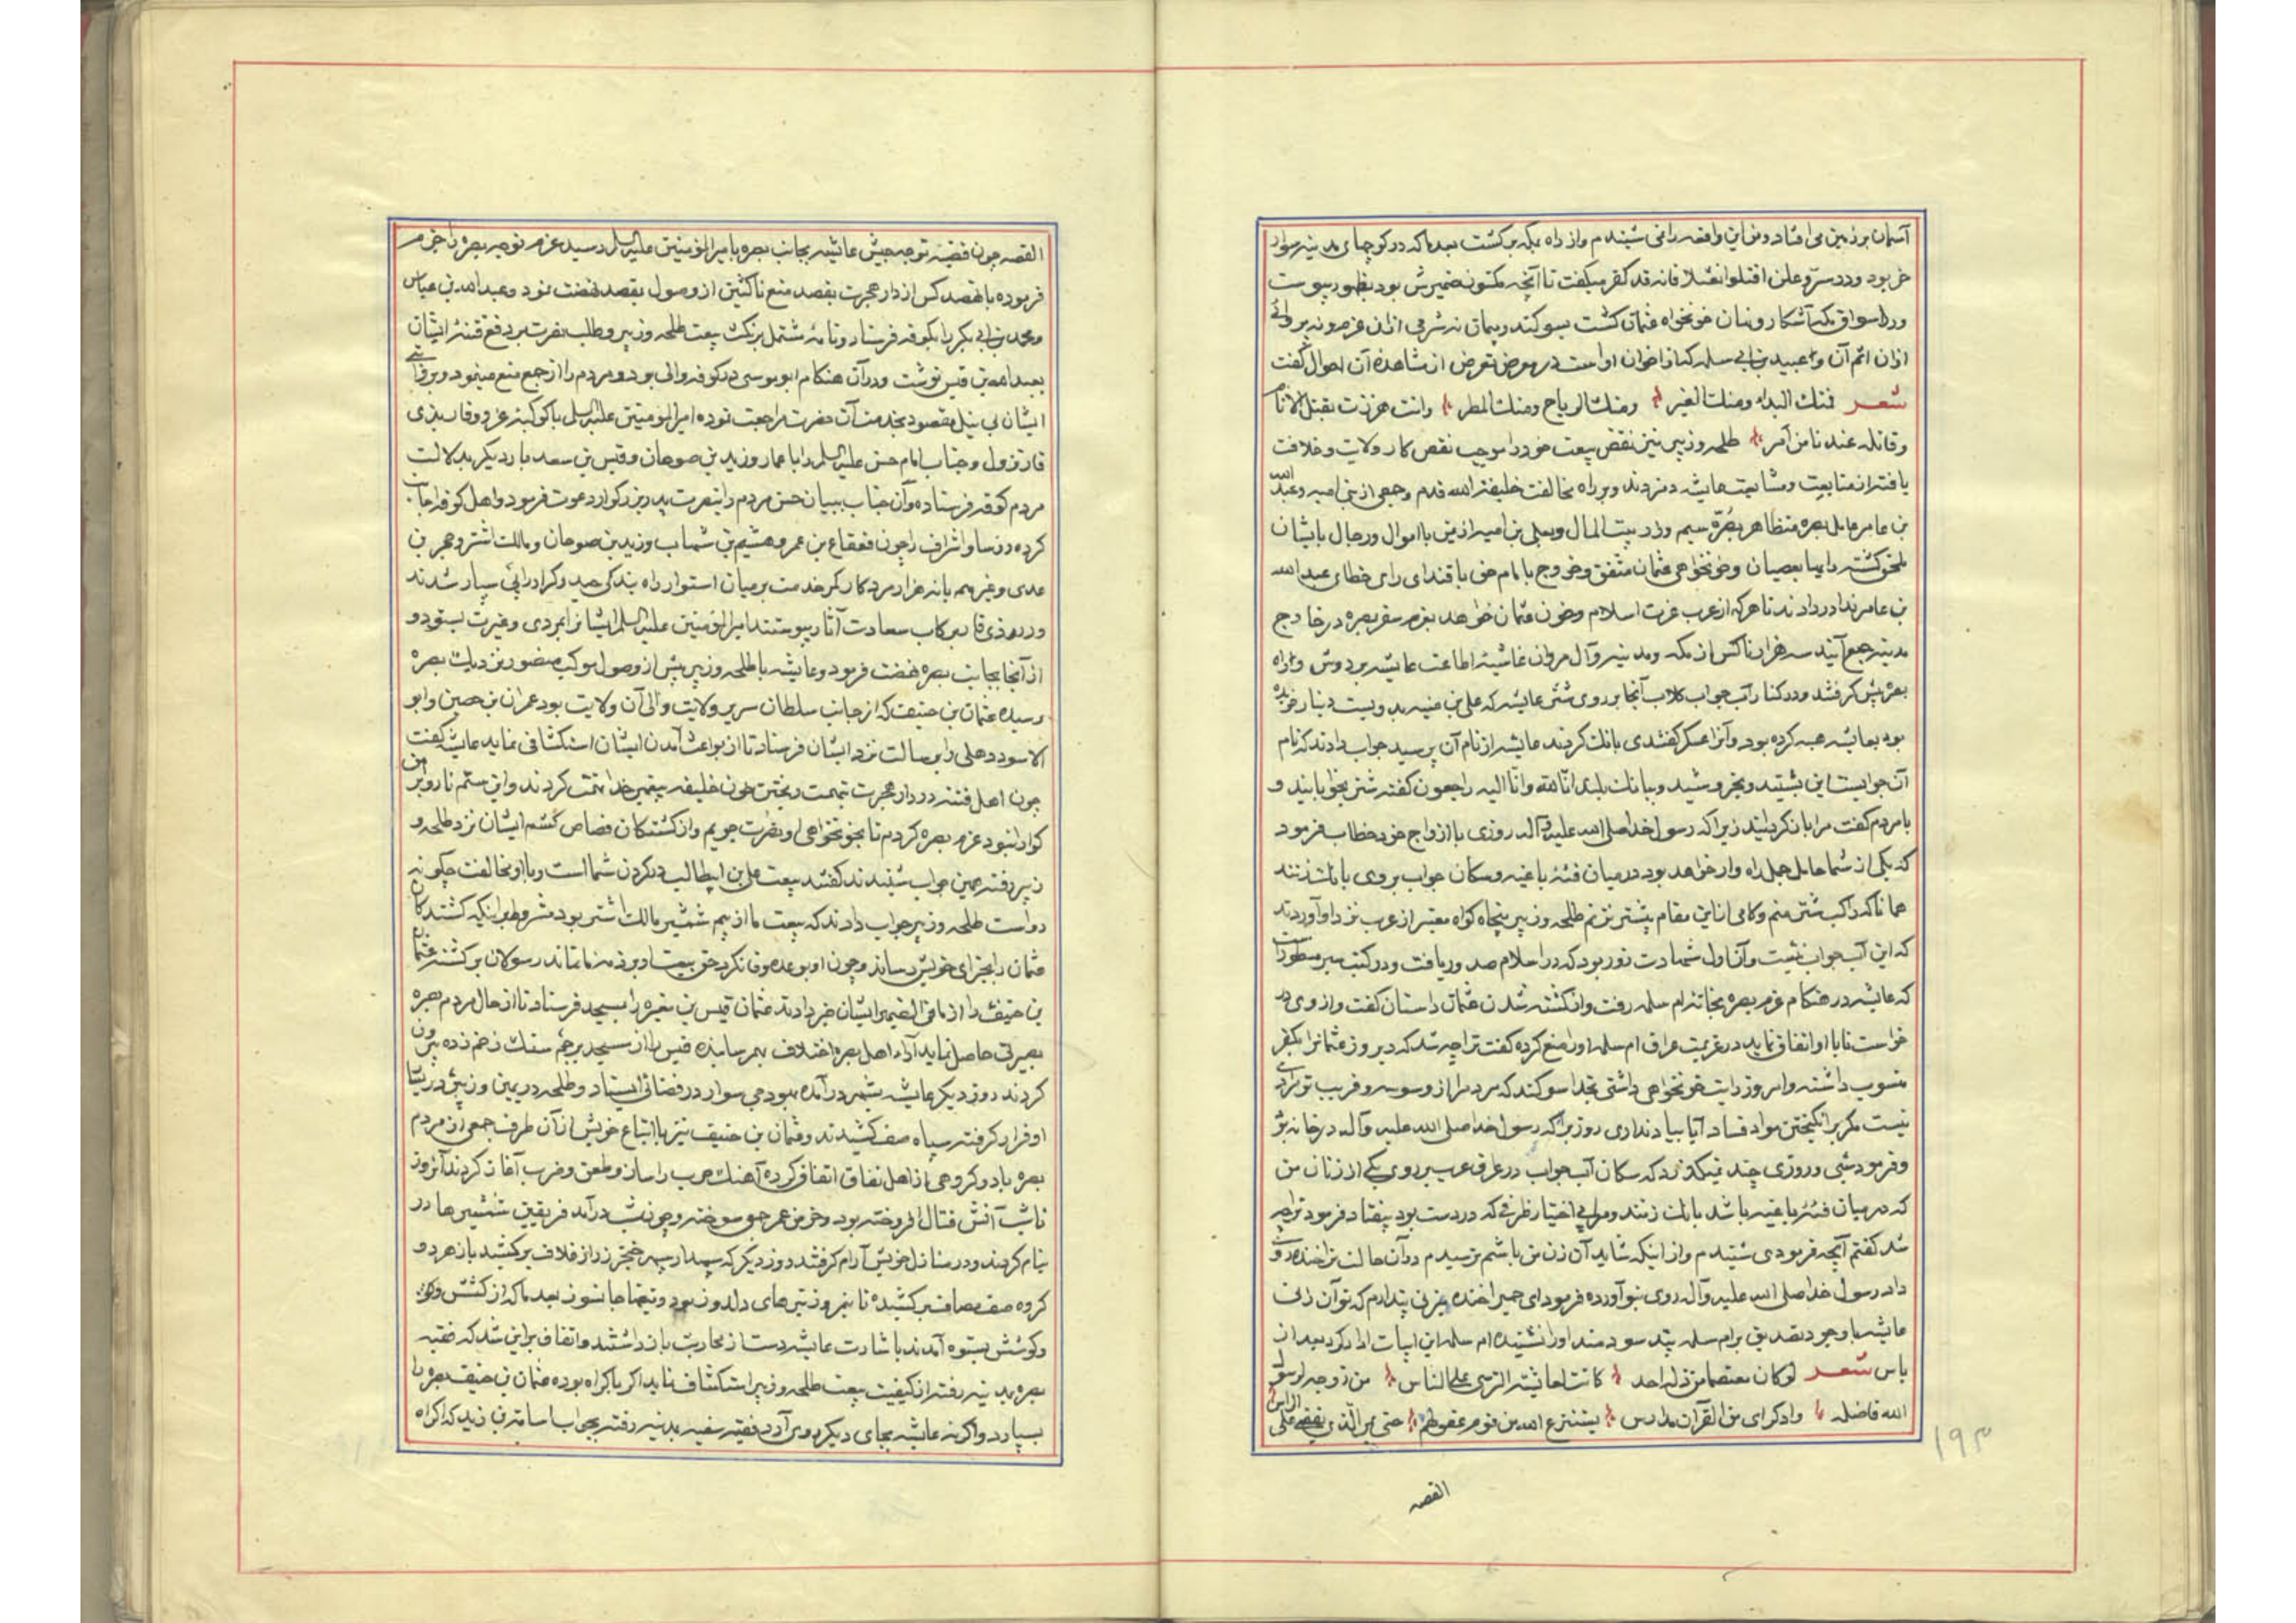 آسمان بر زمین می افتاد و من این واقعه را نمی شنیدم و از راه بمکه برکشت بعد ما که در کوچهای مدینه سوار
خر بود و در سر و علن اقتلوا نعثلا فانه قد کفر میکفت تا آنچه مکنون ضمیرش بود بظهور پیوست
و در اسواق مکه آشکار و نهان خونخواه عثمان کشت بسوکند و پیمان نه شرمی از ان عزم و نه پروائی
از ان اثم آن و عبید بن ابی سلمه که از اخوان او است در معرض تعرض از مشاهده آن احوال کفت
شعر فمنك البداء ومنك الغیر ومنك الریاح ومنك المطر وانت مرت بقتل الامام
وقاتله عندنا من آمر طلحه و زبیر نیز نقض بیعت خود را موجب نقص کار ولایت و خلافت
یافته از متابعت و مشایعت عایشه دم زدند و بر راه مخالفت خلیفة الله قدم و جمعی از بنی امیه و عبد الله
بن عامر عامل بصره متظاهر بصره سیم و زر بیت المال و یعلی بن امیه از یمن با اموال و رجال بایشان
ملحق کشته رایها بعصیان و خونخواهی عثمان متفق و خروج با امام حق باقتدای رای خطای عبد الله
بن عامر ندا در دادند تا هر که از عرب عزت اسلام و خون عثمان خواهد بعزم سفر بصره در خارج
مدینه جمع آیند سه هزار ناکس از مکه و مدینه و آل مروان غاشیه اطاعت عایشه بر دوش و راه
بصره پیش کرفتند و در کنار آب حواب کلاب آنجا بر روی شتر عایشه که علی بن منیه بدویست دینار خریده
بود بعایشه هبه کرده بود و آنرا عسکر کفتندی بانك کردند عایشه از نام آن پرسید جواب دادند که نام
آن حوابست این بشنید و بخروشید و ببانك بلند انا لله وانا الیه راجعون کفته شتر بخوابانید و
با مردم کفت مرا باز کردانید زیرا که رسول خدا صلی الله علیه وآله روزی با ازواج خود خطاب فرمود
که یکی از شما حامل جمل راه وار خواهد بود در میان فئه باغیه و سکان حواب بر وی بانك زنند
همانا که راکب شتر منم و کامی از این مقام پیشتر نزنم طلحه و زبیر پنجاه کواه معتبر از عرب نزد او آوردند
که این آب حواب نیست و آن اول شهادت زور بود که در اسلام صدور یافت و در کتب سیر مسطور است
که عایشه در هنکام عزم بصره بخانه ام سلمه رفت و از کشته شدن عثمان داستان کفت و از وی در
خواست تا با او اتفاق نماید در عزیمت عراق ام سلمه او را منع کرده کفت ترا چه شد که دیروز عثمانرا بکفر
منسوب داشته و امروز رایت خونخواهی داشتی بخدا سوکند که مردم را از وسوسه و فریب تو مرادی
نیست مکر بر انکیختن مواد فساد آیا بیاد نداری روزی را که رسول خدا صلی الله علیه وآله در خانه تو
و فرمود شبی و روزی چند نمیکذرد که سکان آب حواب در عراق عرب بر روی یکی از زنان من
که در میان فئه باغیه باشد بانك زنند و مرا بی اختیار ظرفی که در دست بود بیفتاد فرمود ترا چه
شد کفتم آنچه فرمودی شنیدم و از اینکه شاید آن زن من باشم ترسیدم در آن حالت ترا خنده روی
داد رسول خدا صلی الله علیه وآله روی بتو آورده فرمود ای حمیرا خنده میزنی پندارم که تو آن زنی
عایشه با وجود تصدیق بر ام سلمه پند سودمند او را نشنیده ام سلمه این ابیات ادا کرد بعد از
یاس شعر لو کان معتصما من زلة احد کانت لعایشة الرتبی علی الناس من زوجة لرسول
الله فاضلة واذکر آی من القرآن مدراس ینتزع الله من قوم عقولهم حتی یمر الذی یقضی علی الراس
القصه
۱۹۳
القصه چون قضیه توجه جیش عایشه بجانب بصره بامیر المؤمنین علیه السلام رسید عزم توجه بصره را جزم
فرموده با نهصد کس از دار هجرت بقصد منع ناکثین از وصول بقصد نهضت نمود و عبد الله بن عباس
و محمد بن ابی بکر را بکوفه فرستاد و نامه مشتمل بر نکث بیعت طلحه و زبیر و طلب نصرت بر دفع فتنه ایشان
بعبد الله بن قیس نوشت و در آن هنکام ابو موسی در کوفه والی بود و مردم را از جمع منع مینمود
ایشان بی نیل مقصود بخدمت آن حضرت مراجعت نموده امیر المؤمنین علیه السلام با کوکبه عز و وقار بذی
قار نزول و جناب امام حسن علیه السلام را با عمار و زید بن صوحان و قیس بن سعد بار دیکر بدلالت
مردم کوفه فرستاده و آن جناب ببیان حسن مردم را بنصرت پدر بزرکوار دعوت فرمود و اهل کوفه اجابت
کرده رؤسا و اشراف را چون قعقاع بن عمرو هشیم بن شهاب و زید بن صوحان و مالك اشتر و حجر بن
عدی و غیرهم با نه هزار مرد کار کمر خدمت بر میان استوار راه بندکی صید وکرادرانی سپار شدند
و در ذی قار برکاب سعادت آثار پیوستند امیر المؤمنین علیه السلام ایشانرا بمردی و غیرت بستود و
از آنجا بجانب بصره نهضت فرمود و عایشه با طلحه و زبیر پیش از وصول موکب منصور نزدیك بصره
رسیده عثمان بن حنیف که از جانب سلطان سریر ولایت والی آن ولایت بود عمران بن حصین و ابو
الاسود دهلی را برسالت نزد ایشان فرستاد تا از بواعث آمدن ایشان استکشافی نماید عایشه کفت
چون اهل فتنه در دار هجرت بتهمت ریختن خون خلیفه پیغمبر خدا تهمت کردند و این ستم ناروا بر من
کوارا نبود عزم بصره کردیم تا بخونخواهی او نصرت جویم و از کشندکان قصاص کشم ایشان نزد طلحه و
زبیر رفته همین جواب شنیدند کفتند بیعت علی بن ابیطالب در کردن شما است و با او مخالفت چکونه
رواست طلحه و زبیر جواب دادند که بیعت ما از بیم شمشیر مالك اشتر بود مشروط بر اینکه کشندکان
عثمان را بجزای خویش رساند و چون او بوعده وفا نکرد حق بیعت او بر ذمه ما نماند رسولان برکشته عثمان
بن حنیف را از ما فی الضمیر ایشان خبر دادند عثمان قیس بن مغیره را بمسجد فرستاد تا از حال مردم بصره
بصیرتی حاصل نماید آراء اهل بصره اختلاف بهم رسانیده قیس را از مسجد بزخم سنك زخم زده بیرون
کردند روز دیکر عایشه بشهر درآمده بهودجی سوار در فضائی ایستاد و طلحه در یمین و زبیر در یسار
او قرار کرفته سپاه صف کشیدند و عثمان بن حنیف نیز با اتباع خویش از آن طرف جمعی از مردم
بصره با او و کروهی از اهل نفاق اتفاق کرده آهنك حرب را ساز و طعن و ضرب آغاز کردند آنروز
تا شب آتش قتال افروخته بود و خرمن عمر جو سوخته و چون شب درآمد فریقین شمشیرها در
نیام کردند و در منازل خویش آرام کرفتند روز دیکر که سپهدار سپهر خنجر زر از غلاف برکشید باز هر دو
کروه صف مصاف برکشیده تا نیمروز تیرهای دلدوز بود و تیغها جانسوز بعد ما که از کشش و
وکوشش بستوه آمدند باشارت عایشه دست از محاربت باز داشتند و اتفاق بر این شد که فقیه
بصره بمدینه رفته از کیفیت بیعت طلحه و زبیر استکشاف نماید اکر باکراه بوده عثمان بن حنیف بصره را
بسپارد و اکر نه عایشه بجای دیکر روی آرد فقیه سفیه بمدینه رفته بجواب اسامة بن زید که اکراه